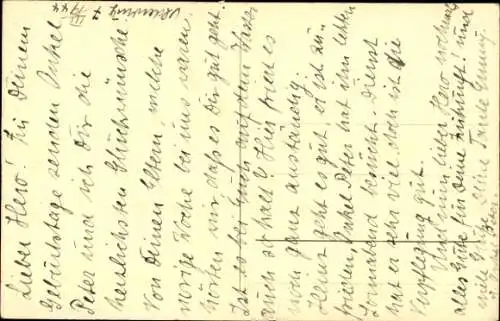 Lieber Hero! Zu Deinem
Geburtstage senden Onkel
Peter und ich Dir die
herzlichsten Glückwünsche
Von Deinen Eltern welche
vorige Woche bei uns waren.
hörten wir daß es Dir gut geht
Ist es bei Euch auf dem
auch so kalt? Hier friert es
noch ganz anständig.
geht es gut er ist zu-
frieden, Onkel Peter hat ihn letzten
Sonnabend besucht. Dienst
hat er sehr viel doch ist die
Verpflegung gut.
Und nun lieber Hero nochmals
alles Gute für Deine Zukunft! und
viele Grüße Deine Tante